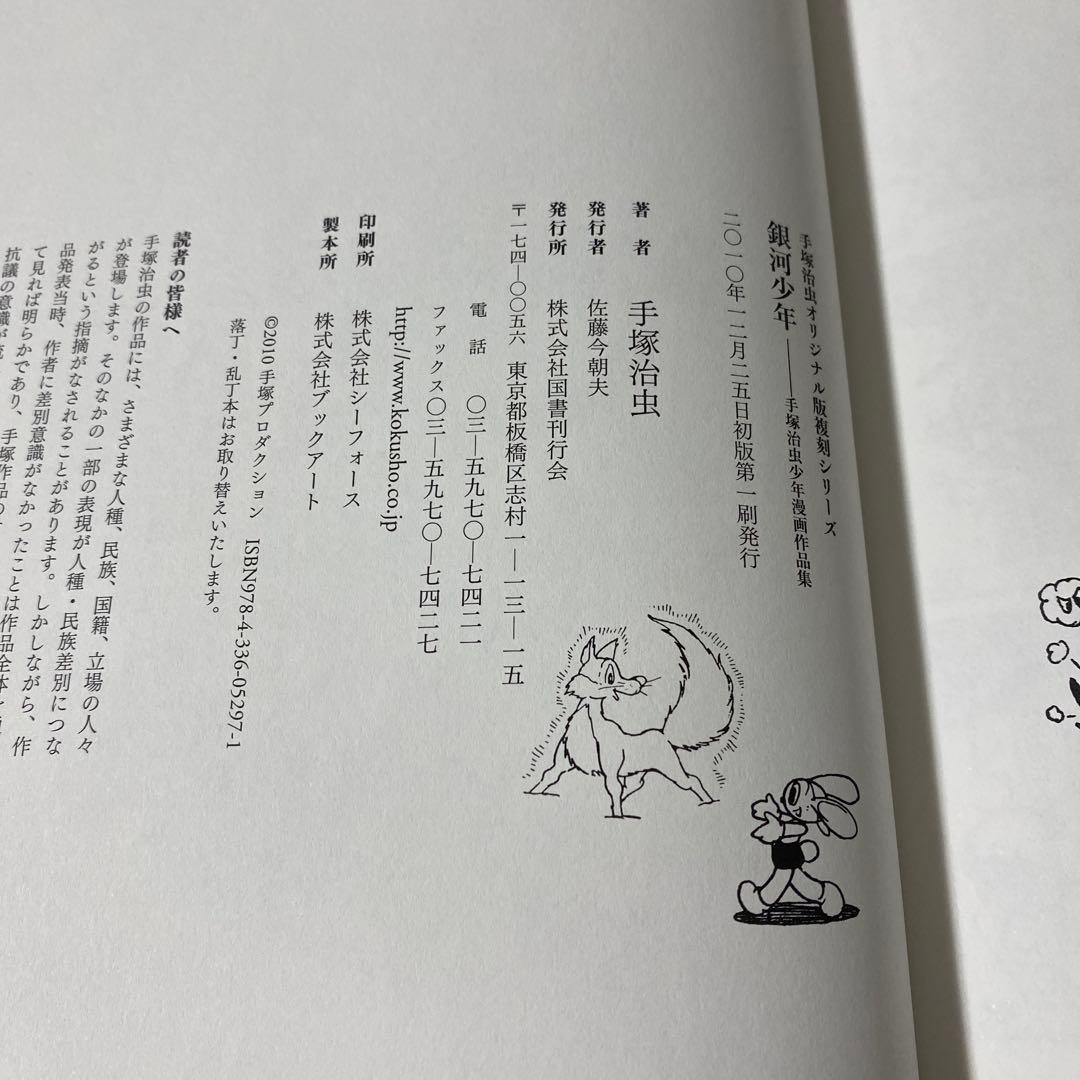 手塚治虫オリジナル版複刻シリーズ
銀河少年――手塚治虫少年漫画作品集
二〇一〇年一二月二五日初版第一刷発行
著者 手塚治虫
発行者 佐藤今朝夫
発行所 株式会社国書刊行会
〒一七四―〇〇五六 東京都板橋区志村一―一三―一五
電話 〇三―五九七〇―七四二一
ファックス〇三―五九七〇―七四二七
http://www.kokusho.co.jp
印刷所 株式会社シーフォース
製本所 株式会社ブックアート
©2010 手塚プロダクション ISBN978-4-336-05297-1
落丁・乱丁本はお取り替えいたします。
読者の皆様へ
手塚治虫の作品には、さまざまな人種、民族、国籍、立場の人々
が登場します。そのなかの一部の表現が人種・民族差別につな
がるという指摘がなされることがあります。しかしながら、作
品発表当時、作者に差別意識がなかったことは作品全体を通し
て見れば明らかであり、手塚作品の
抗議の意識が